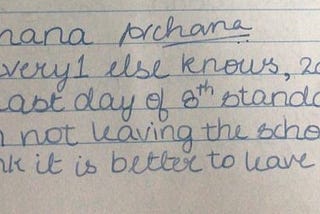 hana Archana
very1 else knows, 20
last day of 8th standa
n not leaving the scho
nk it is better to leave